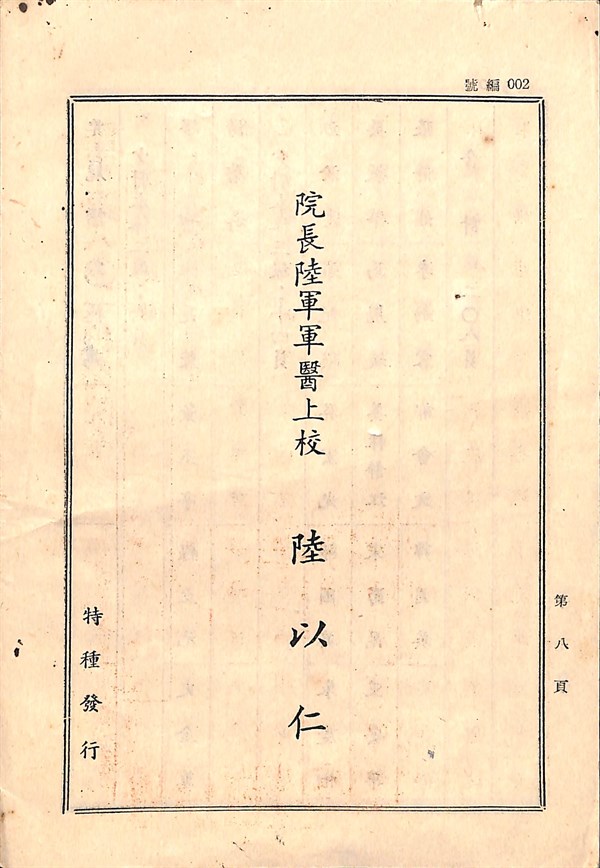 號編 002
院長陸軍軍醫上校 陸以仁
特種發行
第八頁